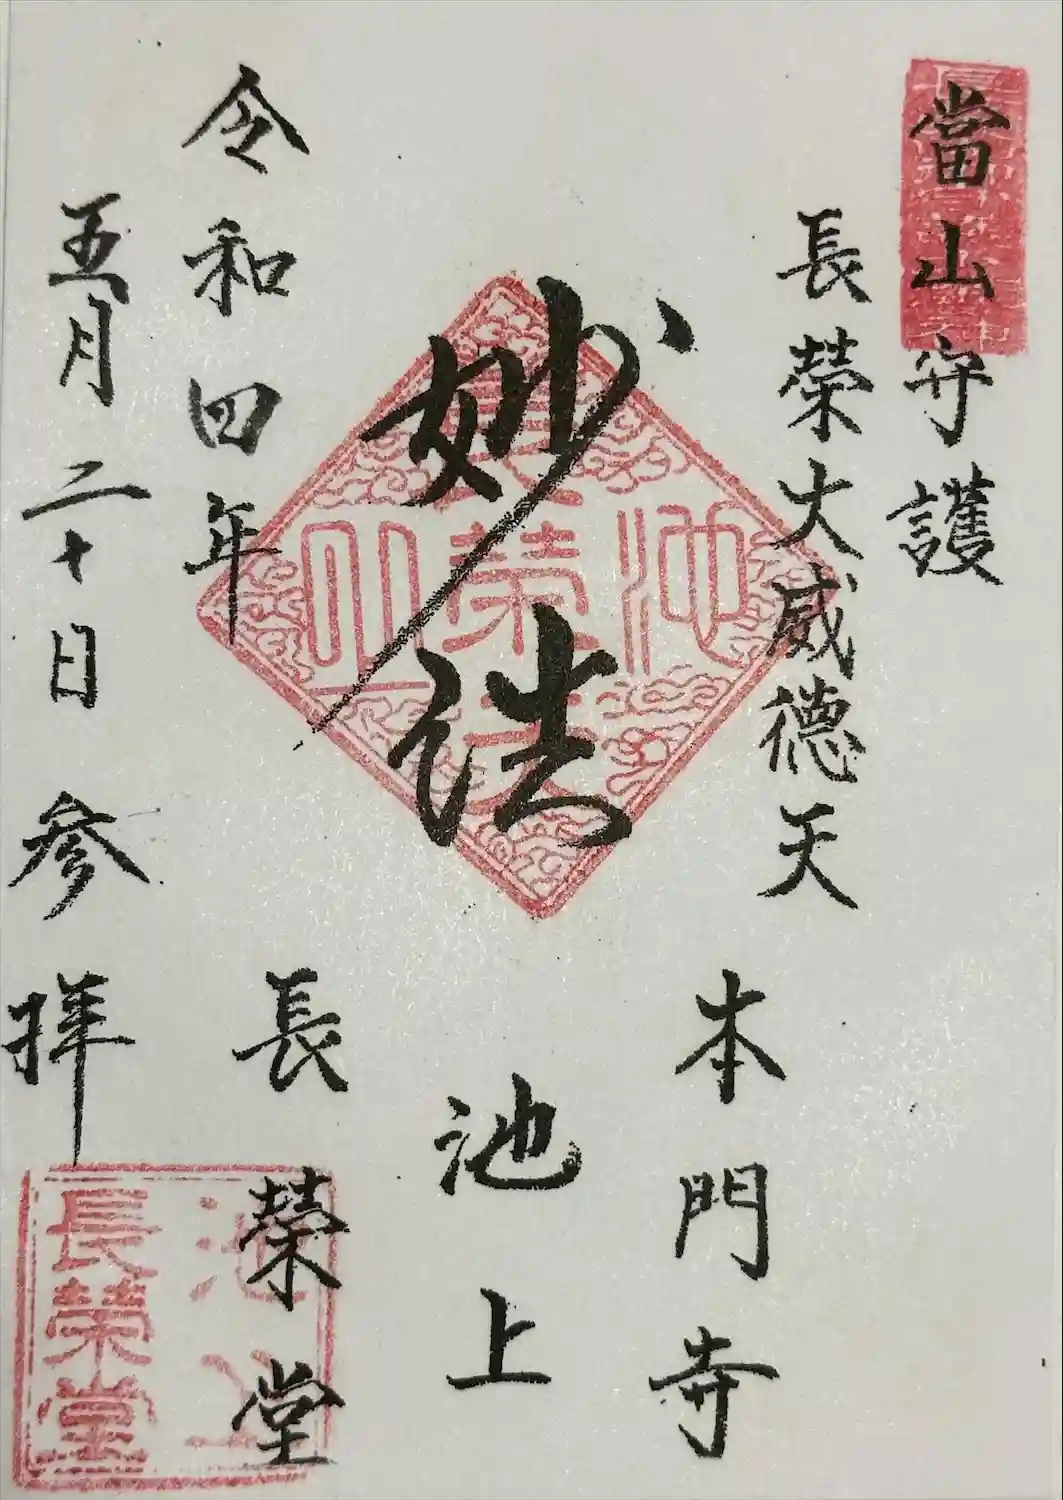 當山守護
長榮大威徳天
妙法
本門寺
池上
長榮堂
令和四年
五月二十日 参拝
池上
長榮堂